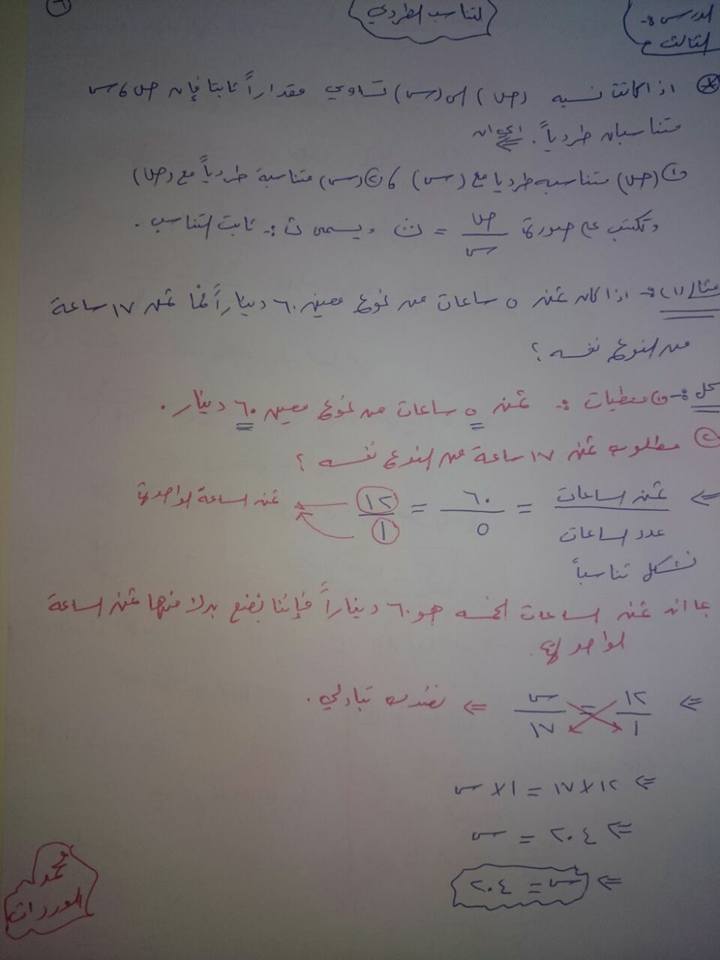 الدرس :-
الثالث
التناسب الطردي
اذا كانت نسبه (ص) الى (س) تساوي مقداراً ثابتا فإن ص ، س
متناسبان طردياً . اي ان
١) (ص) متناسبه طرديا مع (س) ، ٢) (س) متناسبة طردياً مع (ص)
وتكتب على صورة ص/س = ث ويسمى ث :- ثابت التناسب .
مثال (١) :- اذا كان ثمن ٥ ساعات من نوع معين ٦٠ ديناراً فما ثمن ١٧ ساعة
من النوع نفسه ؟
الحل :- ١) معطيات :- ثمن ٥ ساعات من نوع معين ٦٠ دينار .
٢) مطلوب ثمن ١٧ ساعة من النوع نفسه ؟
⇐ ثمن الساعات / عدد الساعات = ٦٠/٥ = ١٢/١ ثمن الساعة الواحدة
نشكل تناسباً
بما ان ثمن الساعات الخمسه هو ٦٠ ديناراً فإننا نضع بدلا منها ثمن الساعة
الواحدة
⇐ ١٢/١ = س/١٧ ⇐ نضرب تبادلي .
⇐ ١٢ × ١٧ = ١ × س
⇐ ٢٠٤ = س
⇐ س = ٢٠٤
محمد